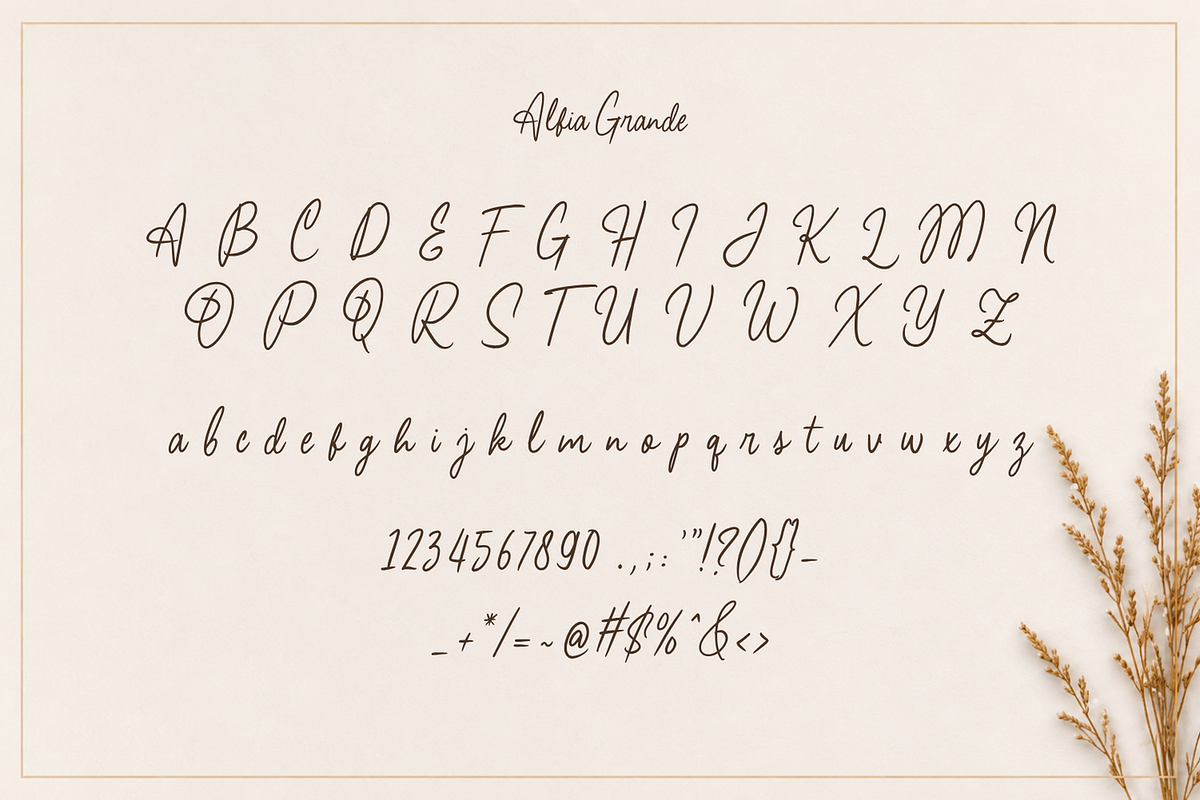 Alfia Grande
A B C D E F G H I J K L M N
O P Q R S T U V W X Y Z
a b c d e f g h i j k l m n o p q r s t u v w x y z
1234567890 .,;: '"!?(){}-
_+*/=~@#$%^&<>